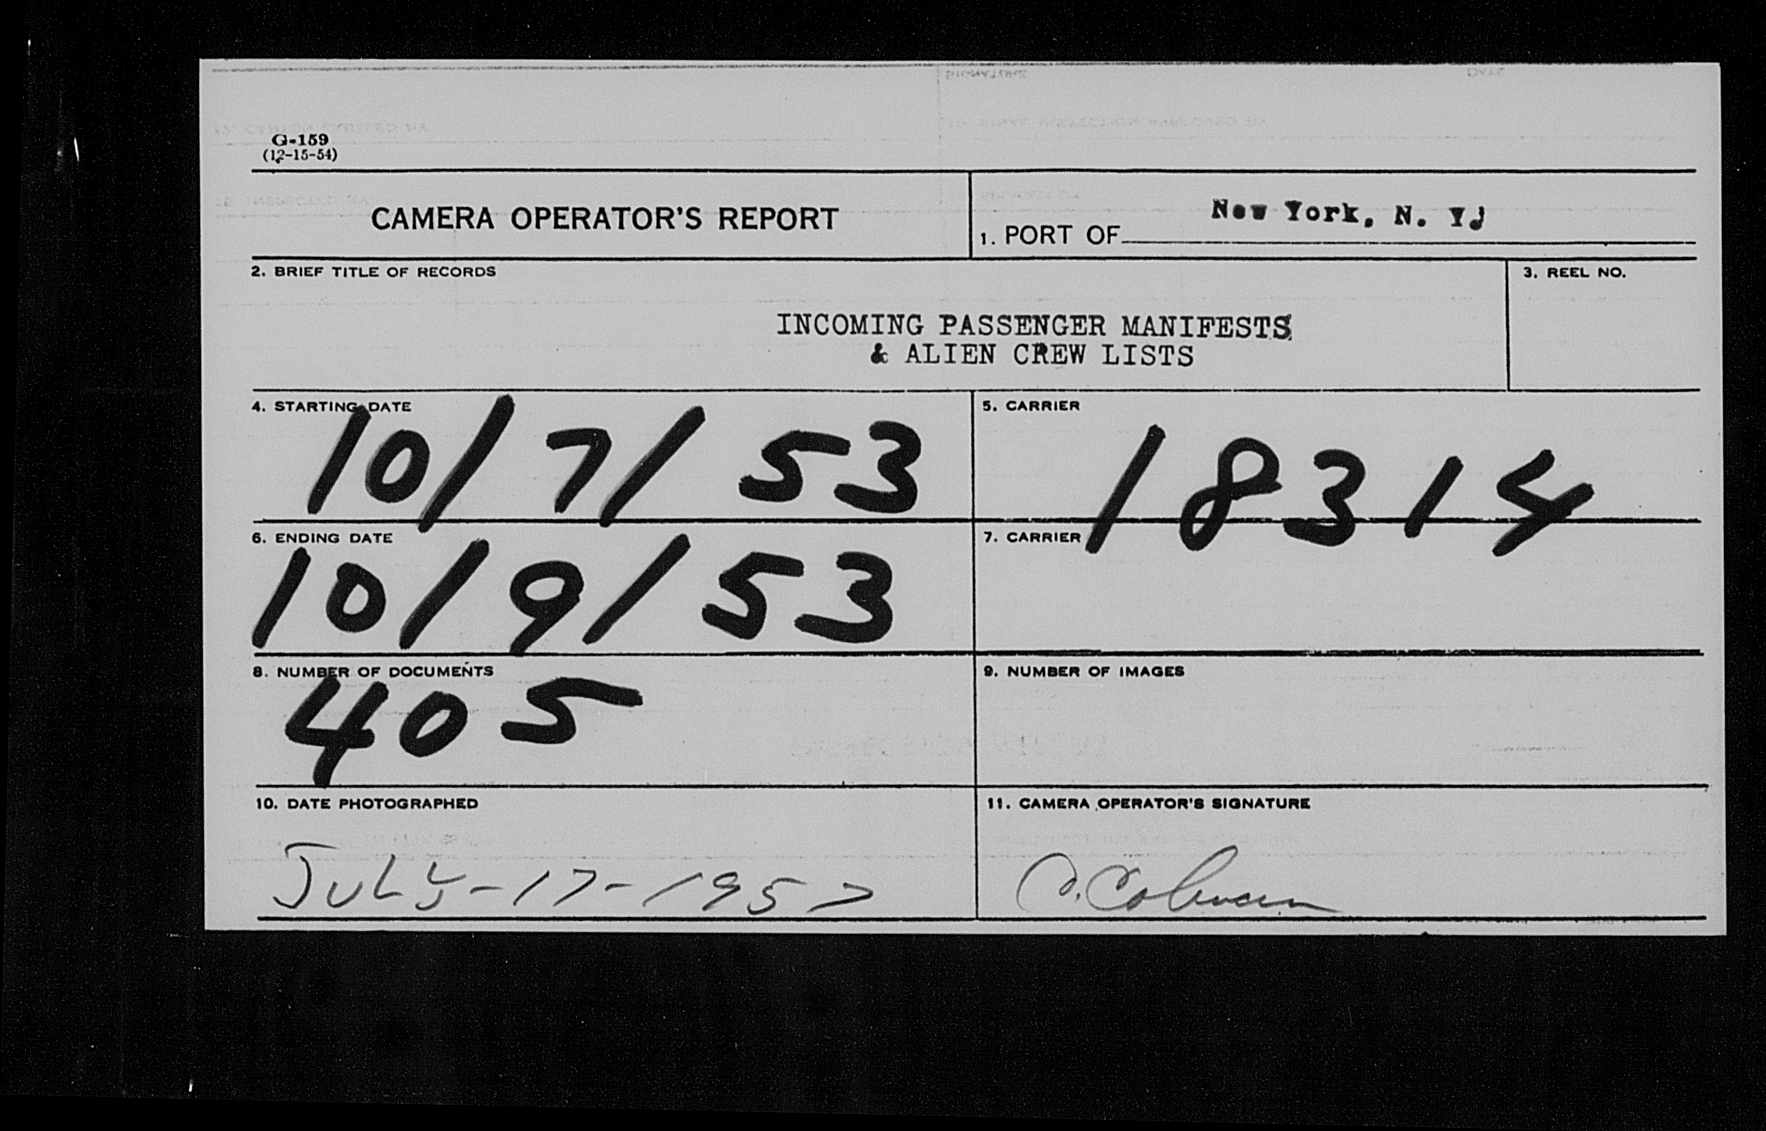 G-159
(12-15-54)
CAMERA OPERATOR'S REPORT
1. PORT OF New York, N. Y.
2. BRIEF TITLE OF RECORDS
INCOMING PASSENGER MANIFESTS
& ALIEN CREW LISTS
3. REEL NO.
4. STARTING DATE
10/7/53
5. CARRIER
18314
6. ENDING DATE
10/9/53
7. CARRIER
8. NUMBER OF DOCUMENTS
405
9. NUMBER OF IMAGES
10. DATE PHOTOGRAPHED
JULY-17-1957
11. CAMERA OPERATOR'S SIGNATURE